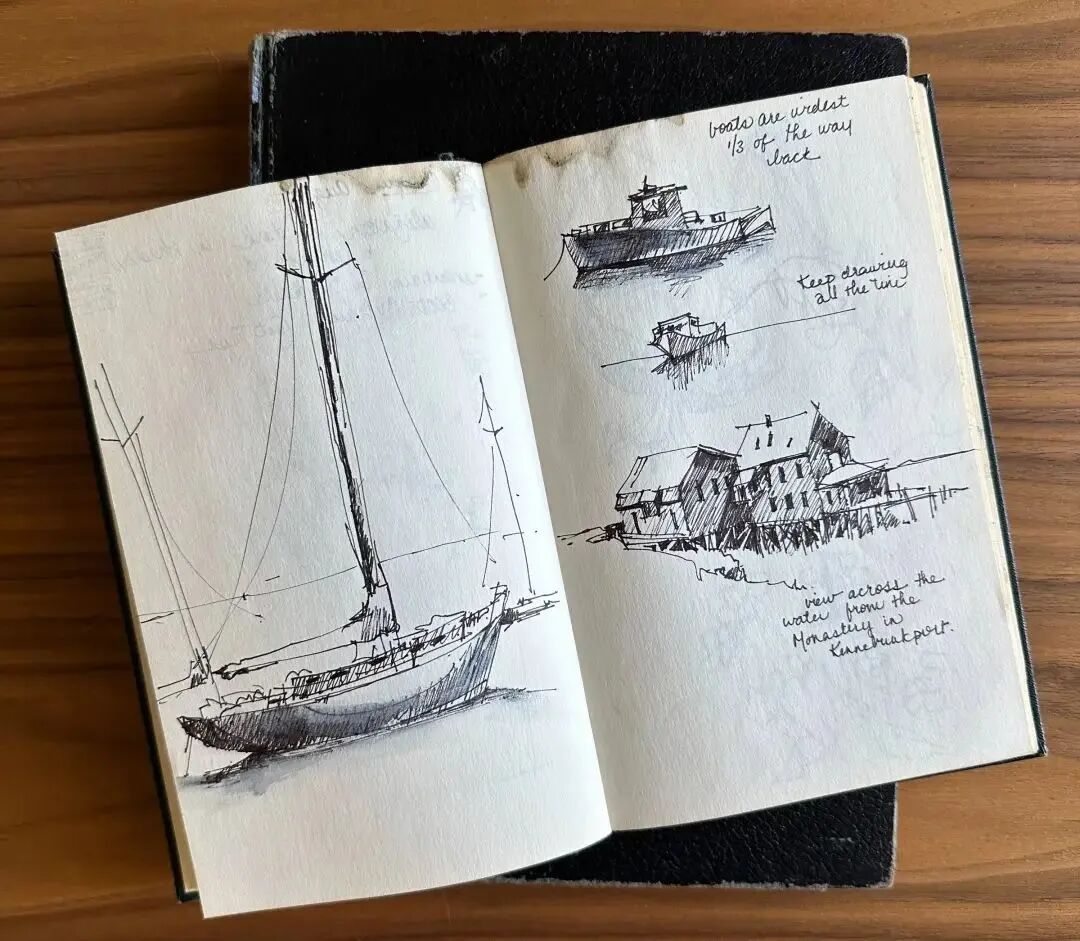 boats are widest
1/3 of the way
back
Keep drawing
all the time
view across the
water from the
Monastery in
Kennebunkport.